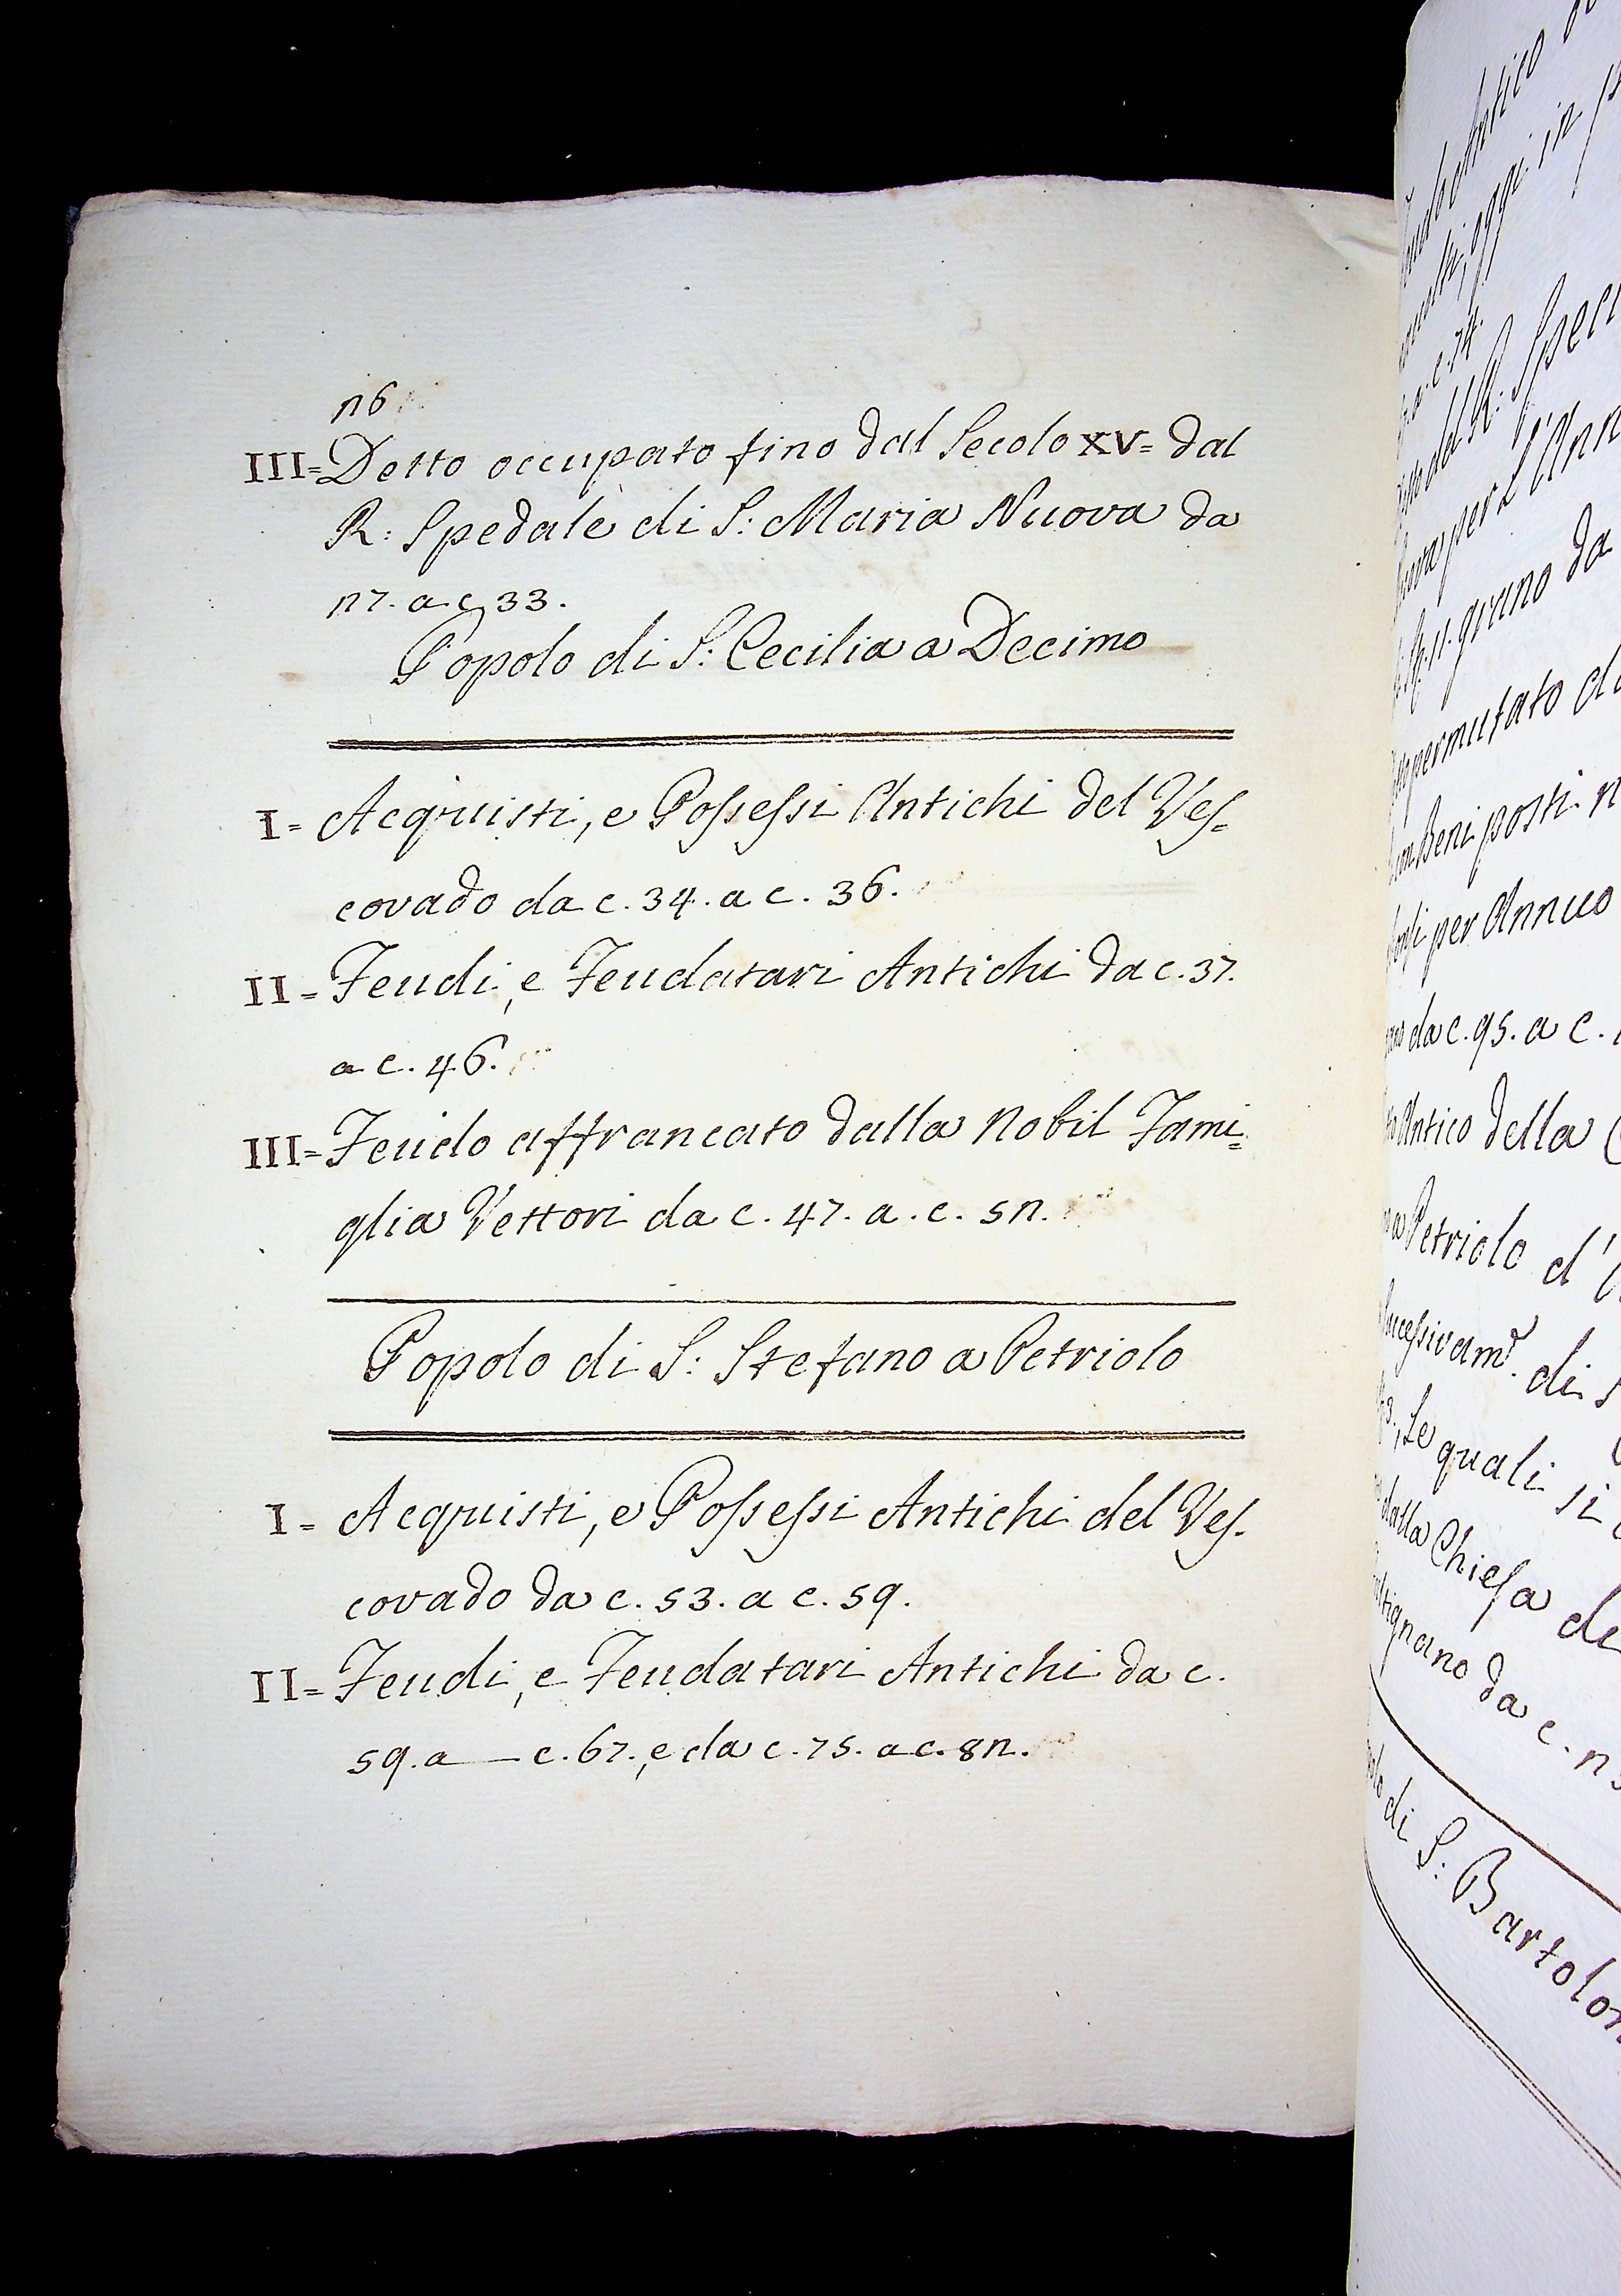 26
III= Detto occupato fino dal Secolo XV= dal
R: Spedale di S: Maria Nuova da
27. a c. 33.
Popolo di S: Cecilia a Decimo
I= Acquisti, e Possessi Antichi del Ves=
covado da c. 34. a c. 36.
II= Feudi, e Feudatari Antichi da c. 37.
a c. 46.
III= Feudo affrancato dalla Nobil Fami=
glia Vettori da c. 47. a. c. 52.
Popolo di S: Stefano a Petriolo
I= Acquisti, e Possessi Antichi del Ves=
covado da c. 53. a c. 59.
II= Feudi, e Feudatari Antichi da c.
59. a — c. 67., e da c. 75. a c. 82.
Antico
oggi in
a c. 74.
del R:
per L'
grano da
permutato
Beni posti
per Annuo
da c. 95. a c.
Antico della
Petriolo d'
di
Le quali si
dalla Chiesa
da c.
di S: